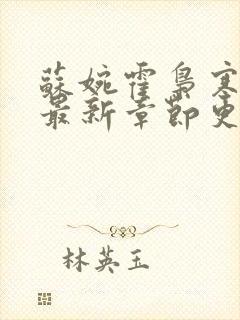 蘇婉霍梟寒
最新章節更
林英玉